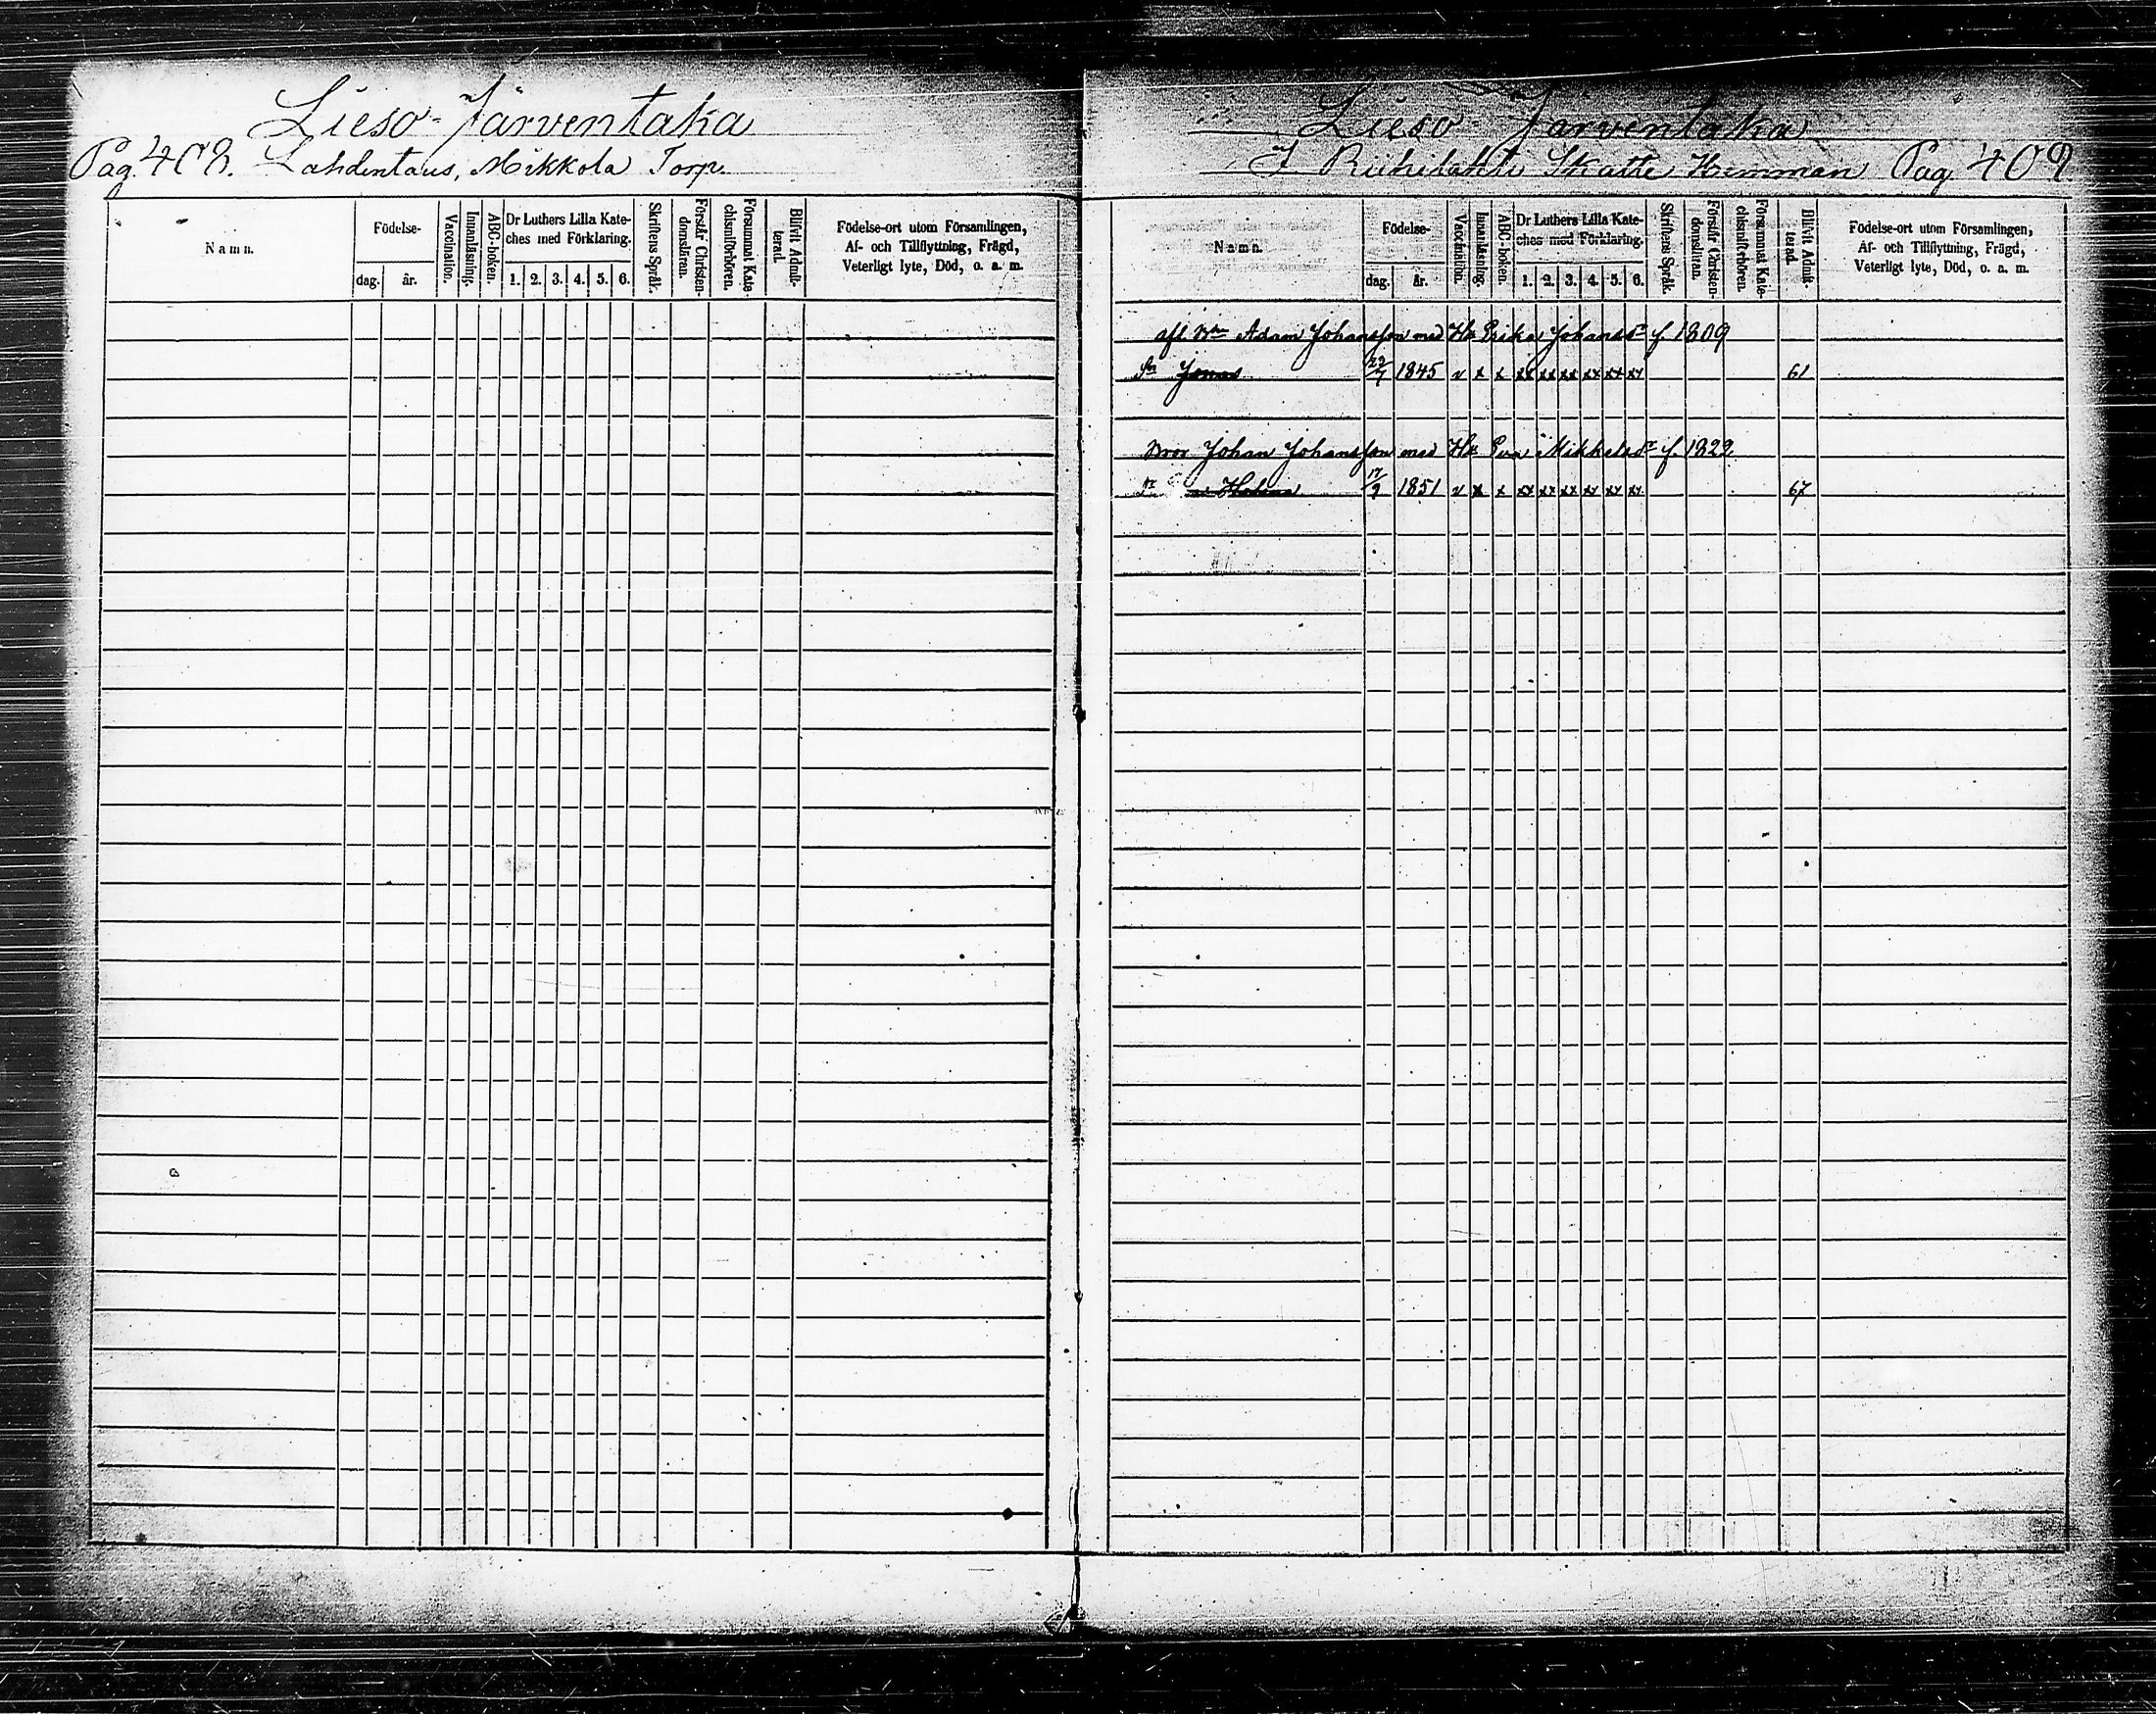 Lieso-Järventaka
Pag. 408. Lahdentaus, Mikkola Torp.
Namn.
Födelse-
dag. år.
Vaccination.
Innanläsning.
ABC-boken.
Dr Luthers Lilla Kate-
ches med Förklaring.
1. 2. 3. 4. 5. 6.
Skriftens Språk.
Förstår Christen-
domsläran.
Försummat Kate-
chismiförhören.
Blifvit Admit-
terad.
Födelse-ort utom Församlingen,
Af- och Tillflyttning, Frägd,
Veterligt lyte, Död, o. a. m.
Lieso-Järventaka
Riihilahti Skatte Hemman Pag. 409
Namn.
Födelse-
dag. år.
Vaccination.
Innanläsning.
ABC-boken.
Dr Luthers Lilla Kate-
ches med Förklaring.
1. 2. 3. 4. 5. 6.
Skriftens Språk.
Förstår Christen-
domsläran.
Försummat Kate-
chismiförhören.
Blifvit Admit-
terad.
Födelse-ort utom Församlingen,
Af- och Tillflyttning, Frägd,
Veterligt lyte, Död, o. a. m.
afl. Adam Johansson med H. Erika Johansdr f. 1809
Sn Jonas 22/7 1845 v x x xx xx xx xx xx xx 61
Bror Johan Johansson med H. Eva Mikkelsdr f. 1822
Dr Helena 17/9 1851 v x x xx xx xx xx xx xx 67